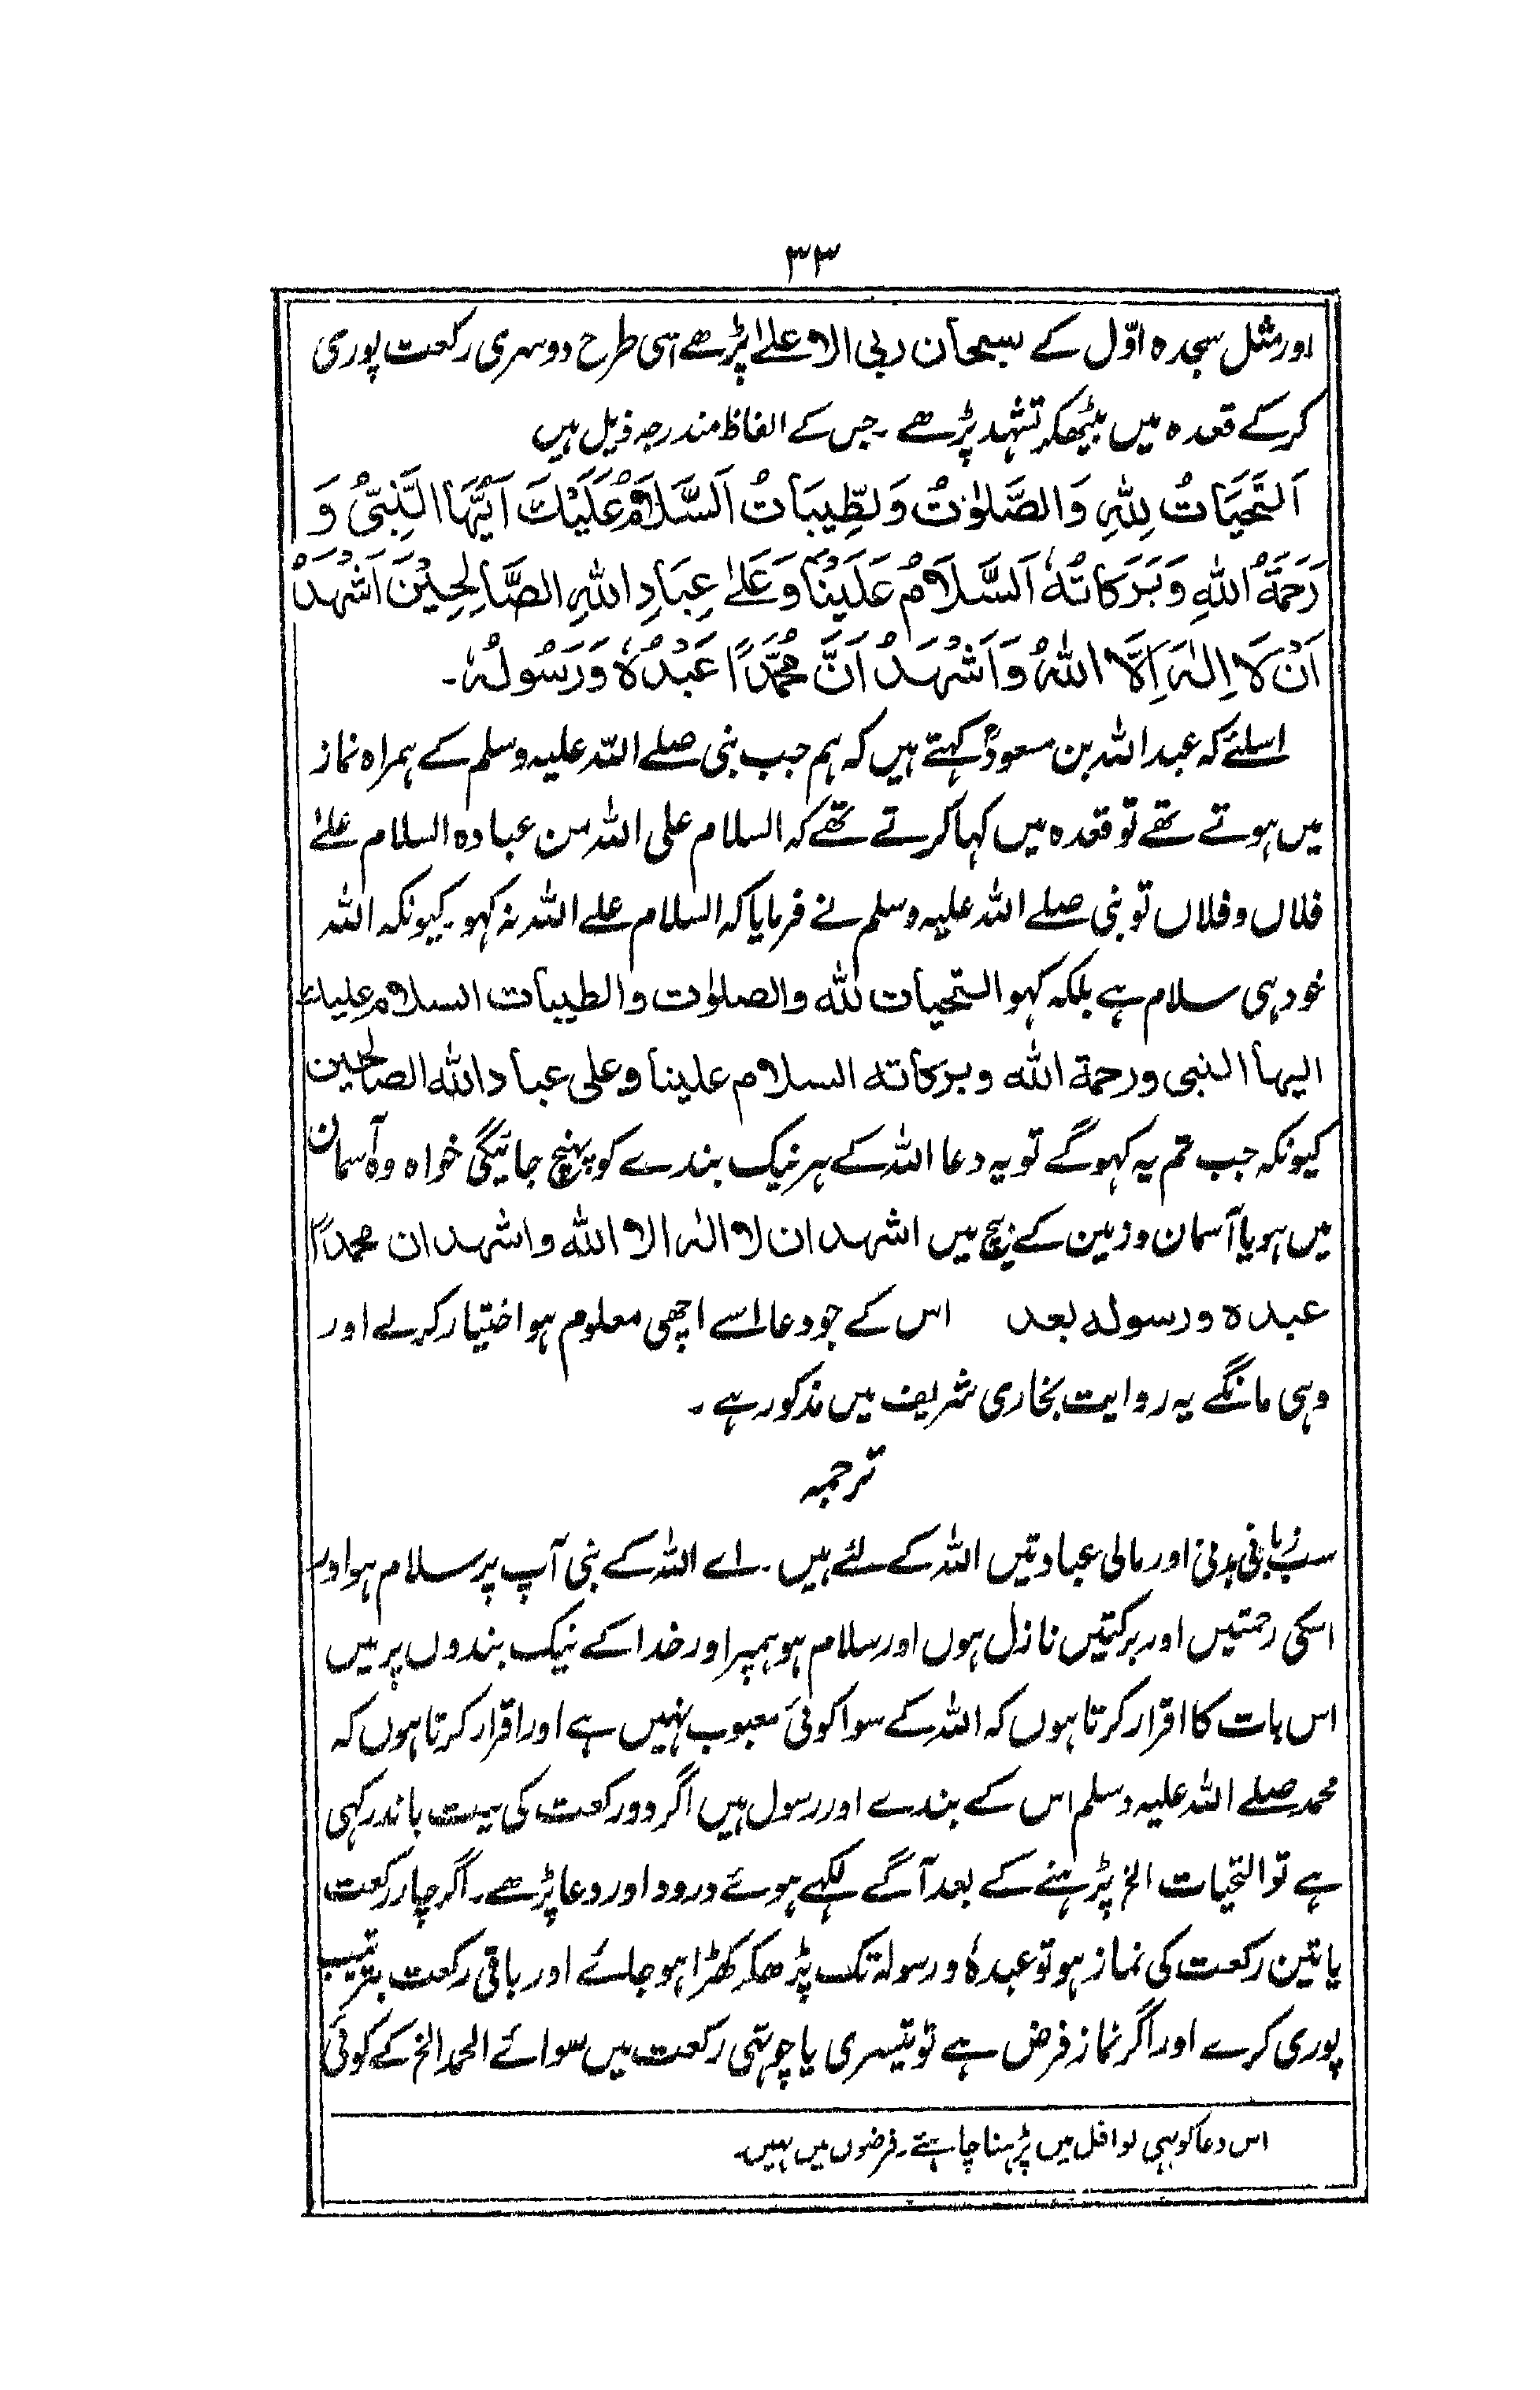 ۳۳
اور مثل سجدہ اوّل کے سبحان ربی الاعلےٰ پڑھے اسی طرح دوسری رکعت پوری
کرکے قعدہ میں بیٹھکر تشہد پڑھے ۔ جس کے الفاظ مندرجہ ذیل ہیں
اَلتَّحَیَّاتُ لِلّٰہِ وَالصَّلَوٰتُ وَلطِّیِبَاتُ اَلسَّلَامُ عَلَیْكَ اَیُّہَا النَّبِیُّ وَ
رَحَمَۃُ اللّٰہِ وَبَرَکَاتُہٗ اَلسَّلَامُ عَلَیْنَا وَعَلےٰ عِبَادِ اللّٰہِ الصَّالِحِیْنَ اَشْہَدُ
اَنْ لَا اِلٰہَ اِلَّا اللّٰہُ وَاَشْہَدُ اَنَّ مُحَمَّدًا عَبْدُہٗ وَرَسُولُہٗ ۔
اسلئے کہ عبد اللہ بن مسعودؓ کہتے ہیں کہ ہم جب نبی صلے اللہ علیہ وسلم کے ہمراہ نماز
میں ہوتے تھے تو قعدہ میں کہا کرتے تھے کہ السلام علی اللہ من عبادہ السلام علےٰ
فلاں وفلاں تو نبی صلے اللہ علیہ وسلم نے فرمایا کہ السلام علے اللہ نہ کہو ۔ کیونکہ اللہ
خود ہی سلام ہے بلکہ کہو التحیات للہ والصلوٰت والطیبات السلام علیك
ایہا النبی ورحمۃ اللہ وبرکاتہ السلام علینا وعلی عباد اللہ الصالحین
کیونکہ جب تم یہ کہوگے تو یہ دعا اللہ کے ہر نیک بندے کو پہنچ جائیگی خواہ وہ آسمان
میں ہو یا آسمان و زمین کے بیچ میں اشہد ان لا الٰہ الا اللہ واشہد ان محمداً
عبدہ ورسولہ بعد اس کے جو دعا اسے اچھی معلوم ہو اختیار کرلے اور
وہی مانگے یہ روایت بخاری شریف میں مذکور ہے ۔
ترجمہ
سب زبانی بدنی اور مالی عبادتیں اللہ کے لئے ہیں ۔ اے اللہ کے نبی آپ پر سلام ہو اور
اسکی رحمتیں اور برکتیں نازل ہوں اور سلام ہو ہمپر اور خدا کے نیک بندوں پر میں
اس بات کا اقرار کرتا ہوں کہ اللہ کے سوا کوئی معبوب نہیں ہے اور اقرار کرتا ہوں کہ
محمد صلے اللہ علیہ وسلم اس کے بندے اور رسول ہیں اگر دو رکعت کی نیت باندرکہی
ہے تو التحیات الخ پڑہنے کے بعد آگے لکہے ہوئے درود اور دعا پڑھے ۔ اگر چار رکعت
یا تین رکعت کی نماز ہو تو عبدہٗ ورسولہ تک پڑھکر کھڑا ہو جائے اور باقی رکعت بترتیب
پوری کرے اور اگر نماز فرض ہے تو تیسری یا چوتہی رکعت میں سوائے الحمد الخ کے کوئی
اس دعا کو بہی نوافل میں پڑہنا چاہئے ۔ فرضوں میں نہیں ۔